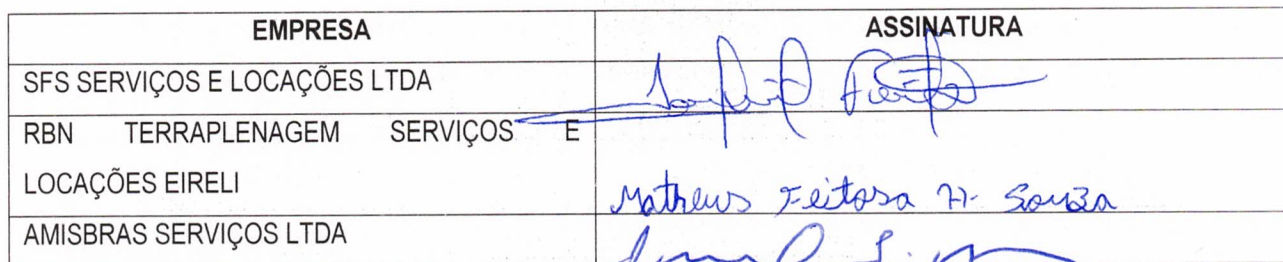 EMPRESA ASSINATURA
SFS SERVIÇOS E LOCAÇÕES LTDA
RBN TERRAPLENAGEM SERVIÇOS E
LOCAÇÕES EIRELI Matheus Feitosa H. Souza
AMISBRAS SERVIÇOS LTDA